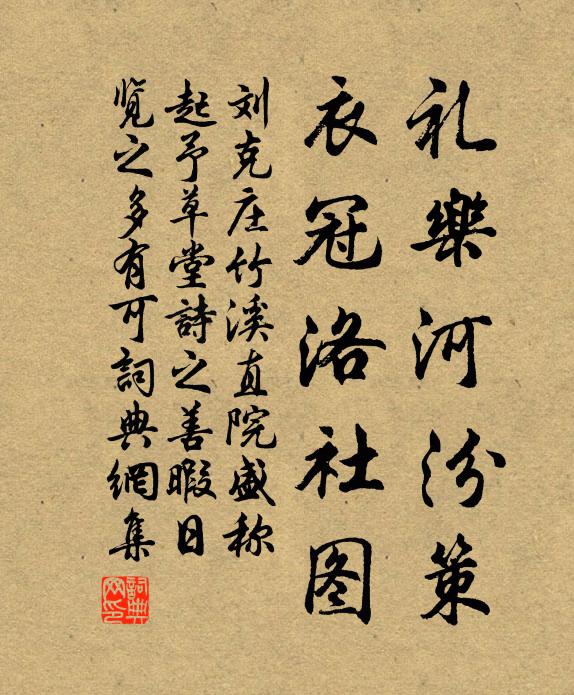 礼樂河汾策
衣冠洛社图
刘克庄竹溪直院盛称
起予草堂詩之善暇日
览之多有可詞典網集
詞典网印